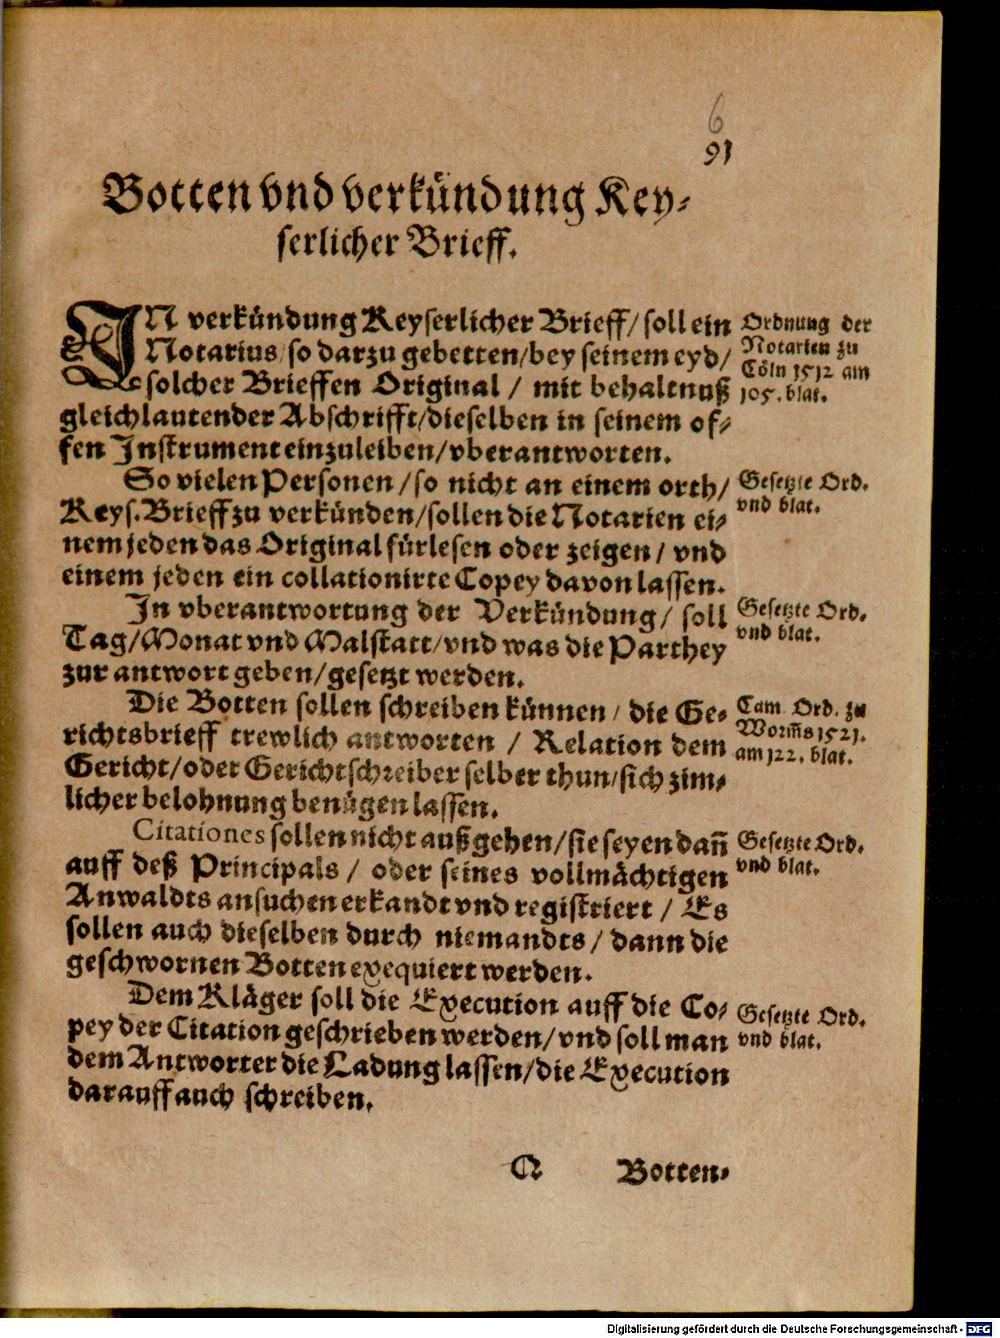 6
91
Botten vnd verkündung Key⸗
serlicher Brieff.
IN verkündung Keyserlicher Brieff/ soll ein
Notarius/ so darzu gebetten/ bey seinem eyd/
solcher Brieffen Original / mit behaltnuß
gleichlautender Abschrifft/ dieselben in seinem of⸗
fen Instrument einzuleiben/ vberantworten.
Ordnung der
Notarien zu
Cöln 1512 am
105. blat.
So vielen Personen/ so nicht an einem orth/
Keys. Brieff zu verkünden/ sollen die Notarien ei⸗
nem jeden das Original fürlesen oder zeigen/ vnd
einem jeden ein collationirte Copey davon lassen.
Gesetzte Ord.
vnd blat.
In vberantwortung der Verkündung/ soll
Tag/ Monat vnd Malstatt/ vnd was die Parthey
zur antwort geben/ gesetzt werden.
Gesetzte Ord.
vnd blat.
Die Botten sollen schreiben künnen/ die Ge⸗
richtsbrieff trewlich antworten / Relation dem
Gericht/ oder Gerichtschreiber selber thun/ sich zim⸗
licher belohnung benügen lassen.
Cam. Ord. zu
Worm̃s 1521.
am 122. blat.
Citationes sollen nicht außgehen/ sie seyen dañ
auff deß Principals / oder seines vollmächtigen
Anwaldts ansuchen erkandt vnd registriert / Es
sollen auch dieselben durch niemandts/ dann die
geschwornen Botten exequiert werden.
Gesetzte Ord.
vnd blat.
Dem Kläger soll die Execution auff die Co⸗
pey der Citation geschrieben werden/ vnd soll man
dem Antworter die Ladung lassen/ die Execution
darauff auch schreiben.
Gesetzte Ord.
vnd blat.
Q Botten⸗
Digitalisierung gefördert durch die Deutsche Forschungsgemeinschaft - DFG